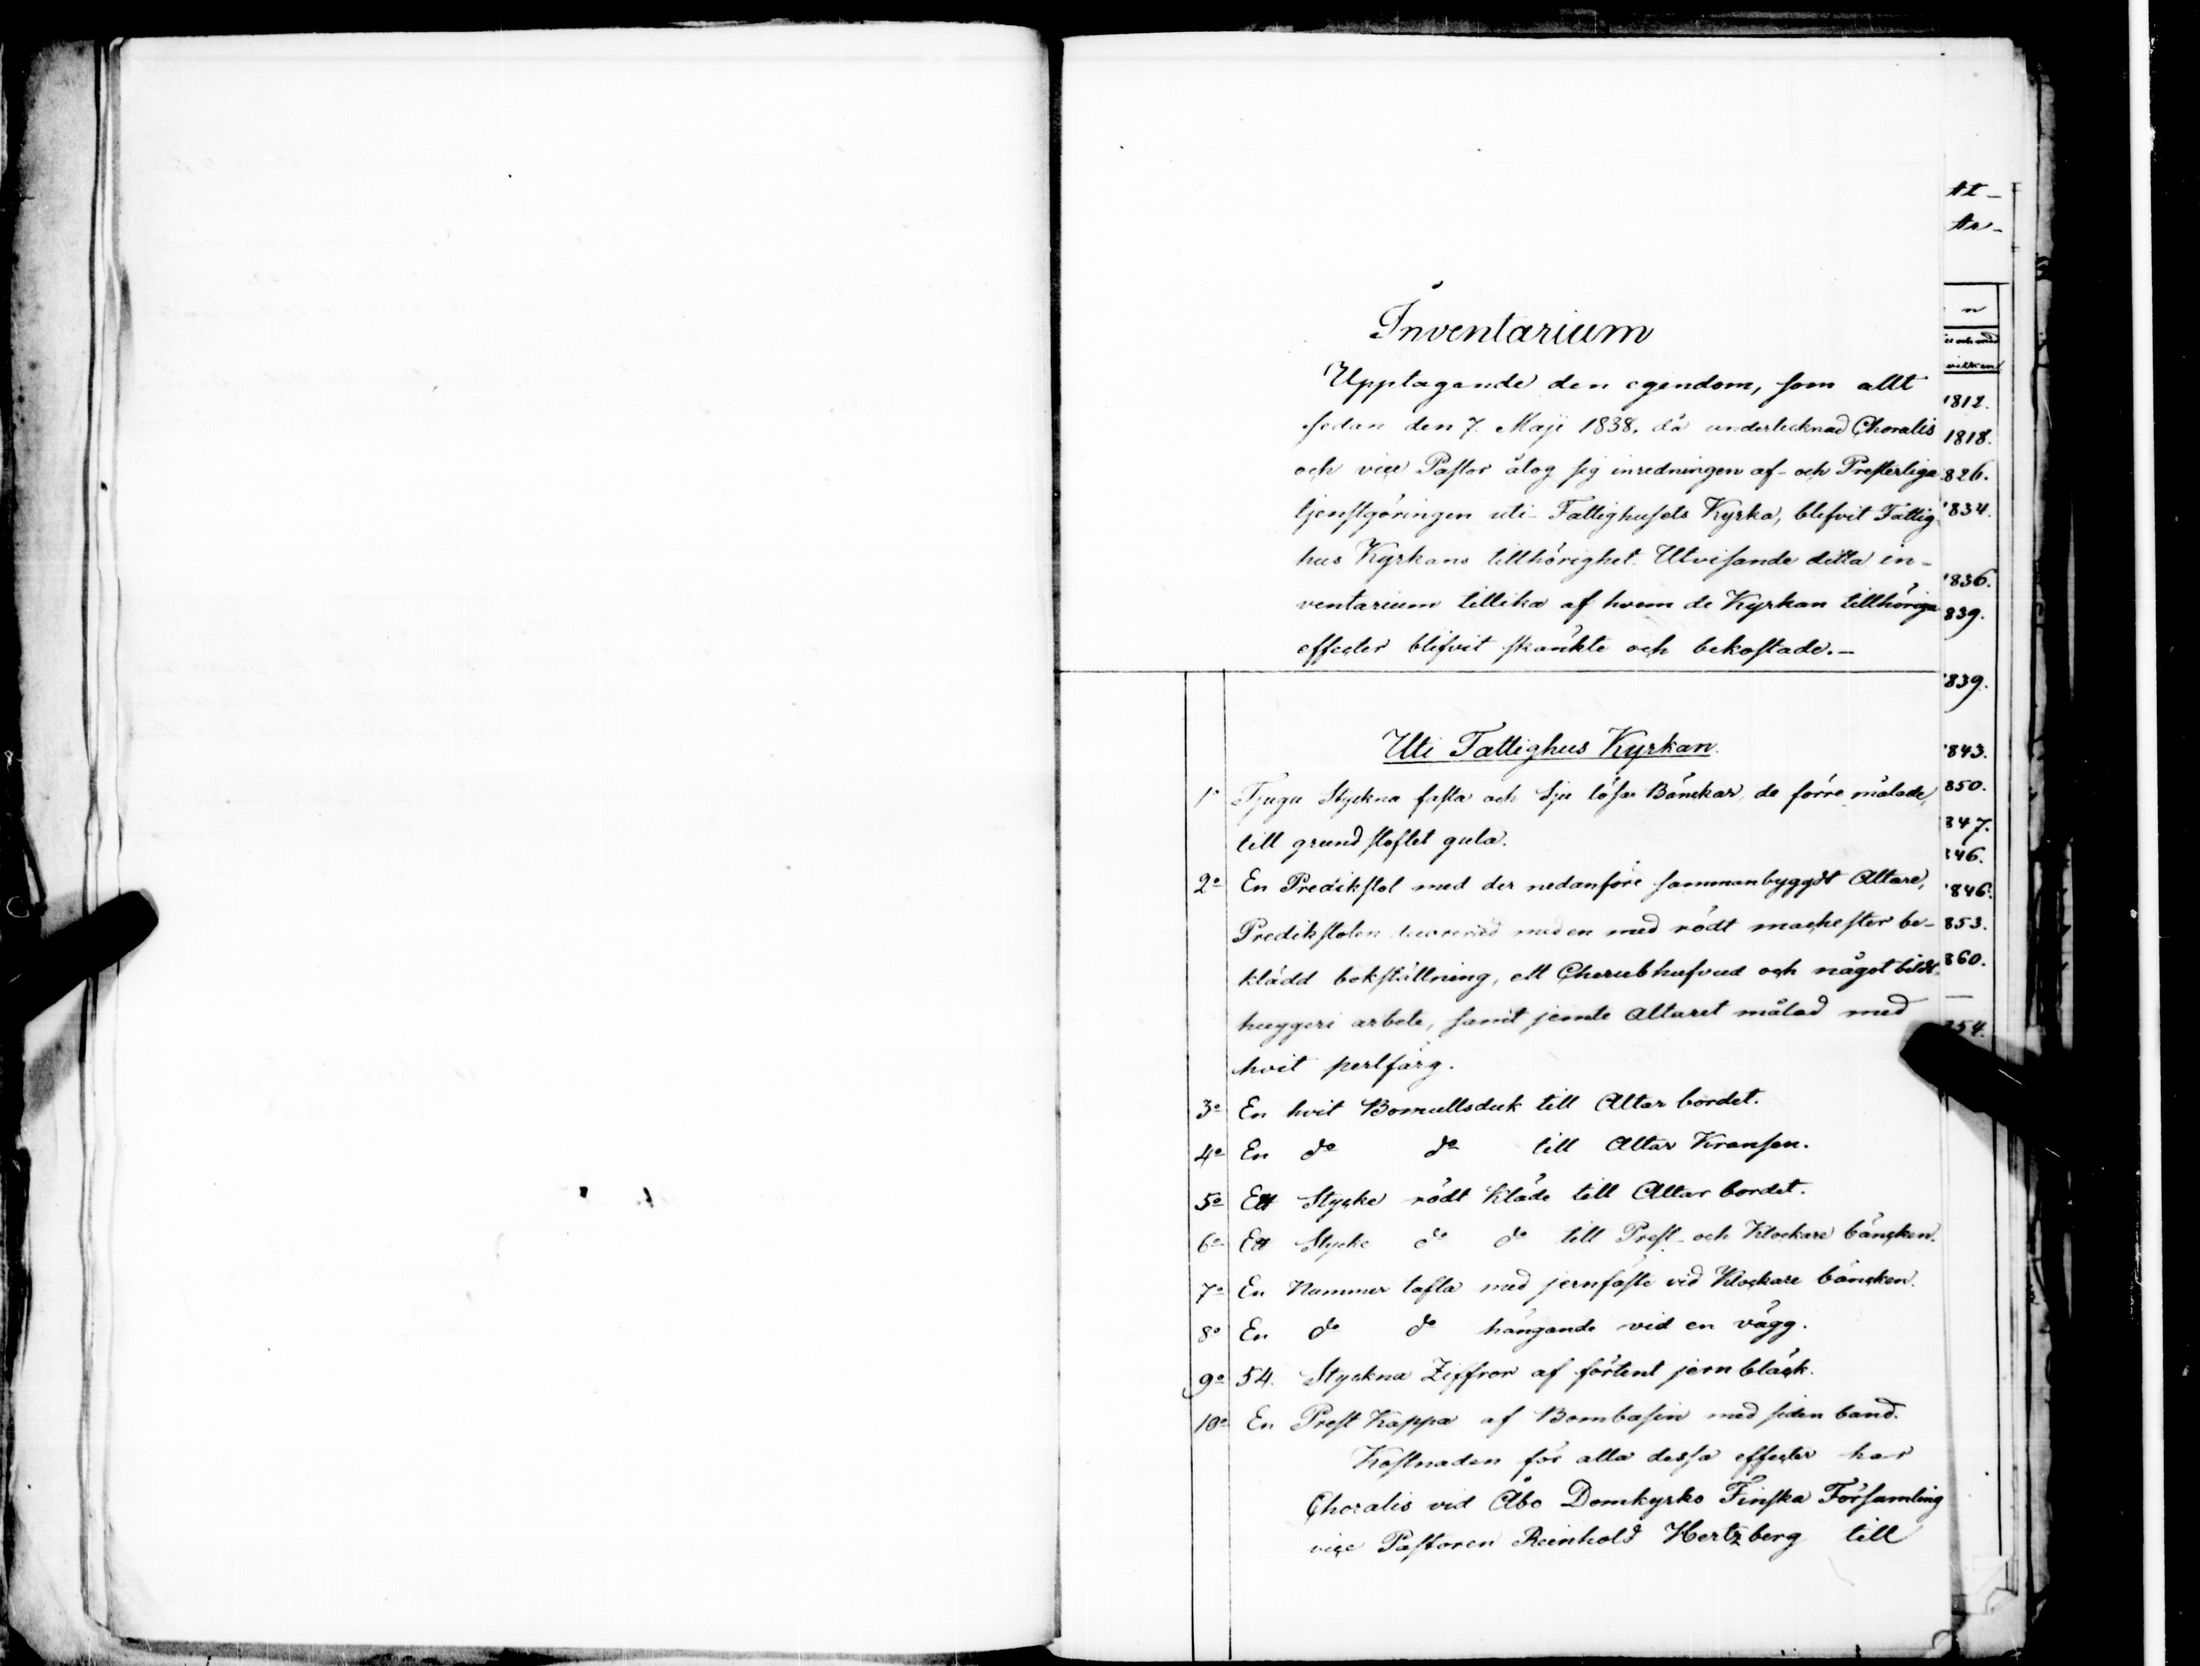 Inventarium
Upptagande den egendom, som allt
sedan den 7. Maji 1838, då undertecknad Choralis
och vice Pastor åtog sig inredningen af- och Presterliga
tjenstgöringen uti Fattighusets Kyrka, blifvit Fattig-
hus Kyrkans tillhörighet. Utvisande detta in-
ventarium tillika af hvem de Kyrkan tillhöriga
effecter blifvit skänkte och bekostade.—
Uti Fattighus Kyrkan.
1º Tjugu Styckna fasta och Sju lösa Bänckar, de förre målade,
till grundstoftet gula.
2º En Predikstol med der nedanföre sammanbyggdt Altare,
Predikstolen decorerad med en med rödt maschester be-
klädd bokställning, ett Cherubhufvud och något bildt-
huggeri arbete, samt jemte Altaret målad med
hvit perlfärg.
3º En hvit Bomullsduk till Altar bordet.
4º En dº dº till Altar Kransen.
5º Ett Stycke rödt kläde till Altar bordet.
6º Ett Stycke dº dº till Prest- och Klockare bäncken.
7º En Nummer tafla med jernfäste vid Klockare bäncken.
8º En dº dº hängande vid en vägg.
9º 54. Styckna Ziffror af förtent jern bläck.
10º En Prest Kappa af Bombasin med siden band.
Kostnaden för alla dessa effecter har
Choralis vid Åbo Domkyrko Finska Församling
vice Pastoren Reinhold Hertzberg till
tt-
tr-
n
1812.
1818.
826.
1834.
1836.
839.
1839.
1843.
850.
847.
846.
1846.
853.
860.
854.